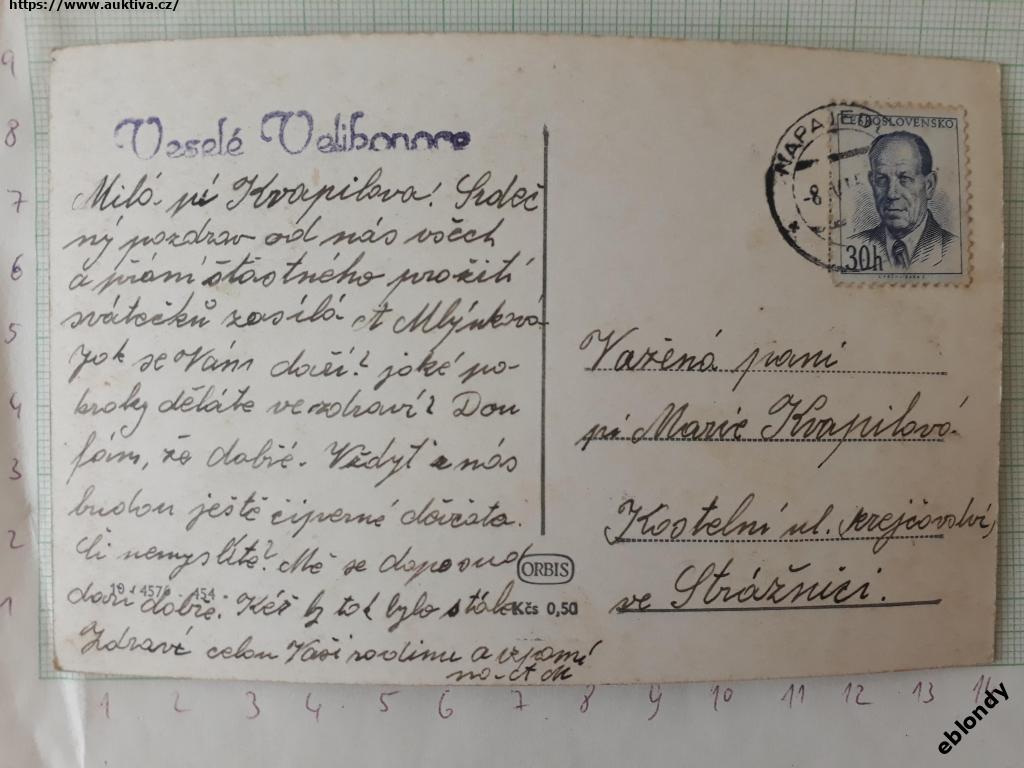 https://www.auktiva.cz/
Veselé Velikonoce
Milá pí Kvapilova! Srdeč
ný pozdrav od nás všech
a přání šťastného prožití
svátečků zasílá A Mlýnková
Jak se Vám daří? jaké po-
kroky děláte ve zdraví? Dou
fám, že dobré. Vždyť z nás
budou ještě čiperné děvčata.
Či nemyslíte? Mě se doposud
daří dobře. Kéž by tak bylo stále
Zdraví celou Vaši rodinu a vzpomí
ná A M
ČESKOSLOVENSKO
30h
NAPAJEDL
-8
Važená paní
pí Marie Kvapilová
Kostelní ul. (krejčovství)
ve Strážnici.
ORBIS
Kčs 0,50
9
8
7
6
5
4
3
2
1
1 2 3 4 5 6 7 8 9 10 11 12 13 14
eblondy